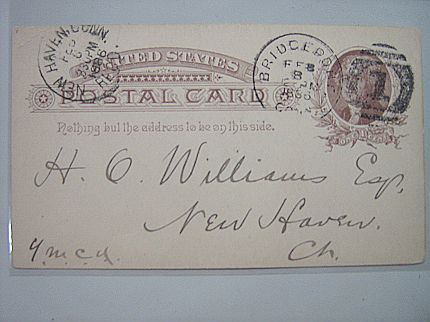 NEW HAVEN, CONN.
FEB
8
830PM
1886
REC'D
BRIDGEPORT
FEB
8
CONN.
UNITED STATES
POSTAL CARD
Nothing but the address to be on this side.
H. O. Williams Esq,
New Haven.
Ymca.
Ct.